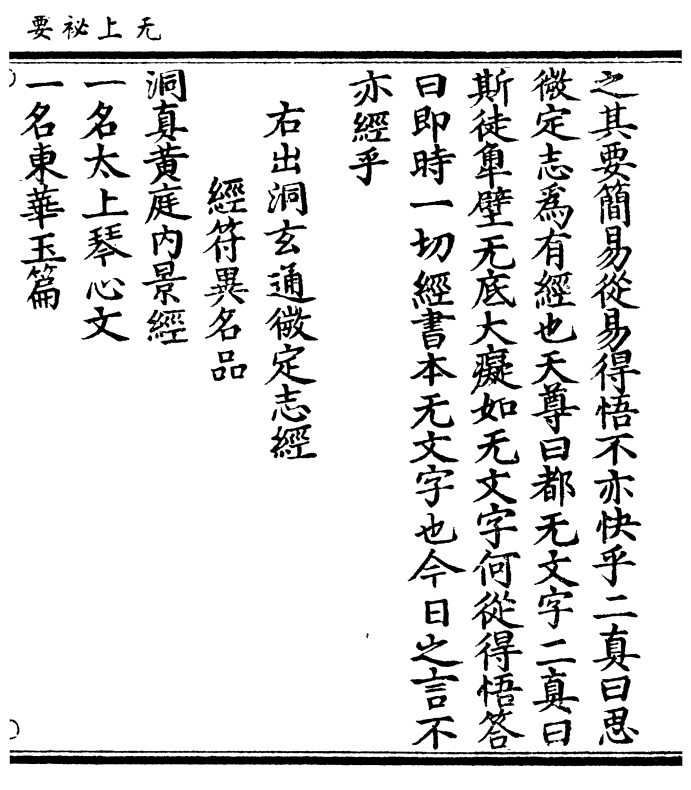 无上祕要
之其要簡易從易得悟不亦快乎二真曰思
微定志爲有經也天尊曰都无文字二真曰
斯徒卑壁无底大癡如无文字何從得悟答
曰即時一切經書本无文字也今日之言不
亦經乎
右出洞玄通微定志經
經符異名品
洞真黃庭内景經
一名太上琴心文
一名東華玉篇